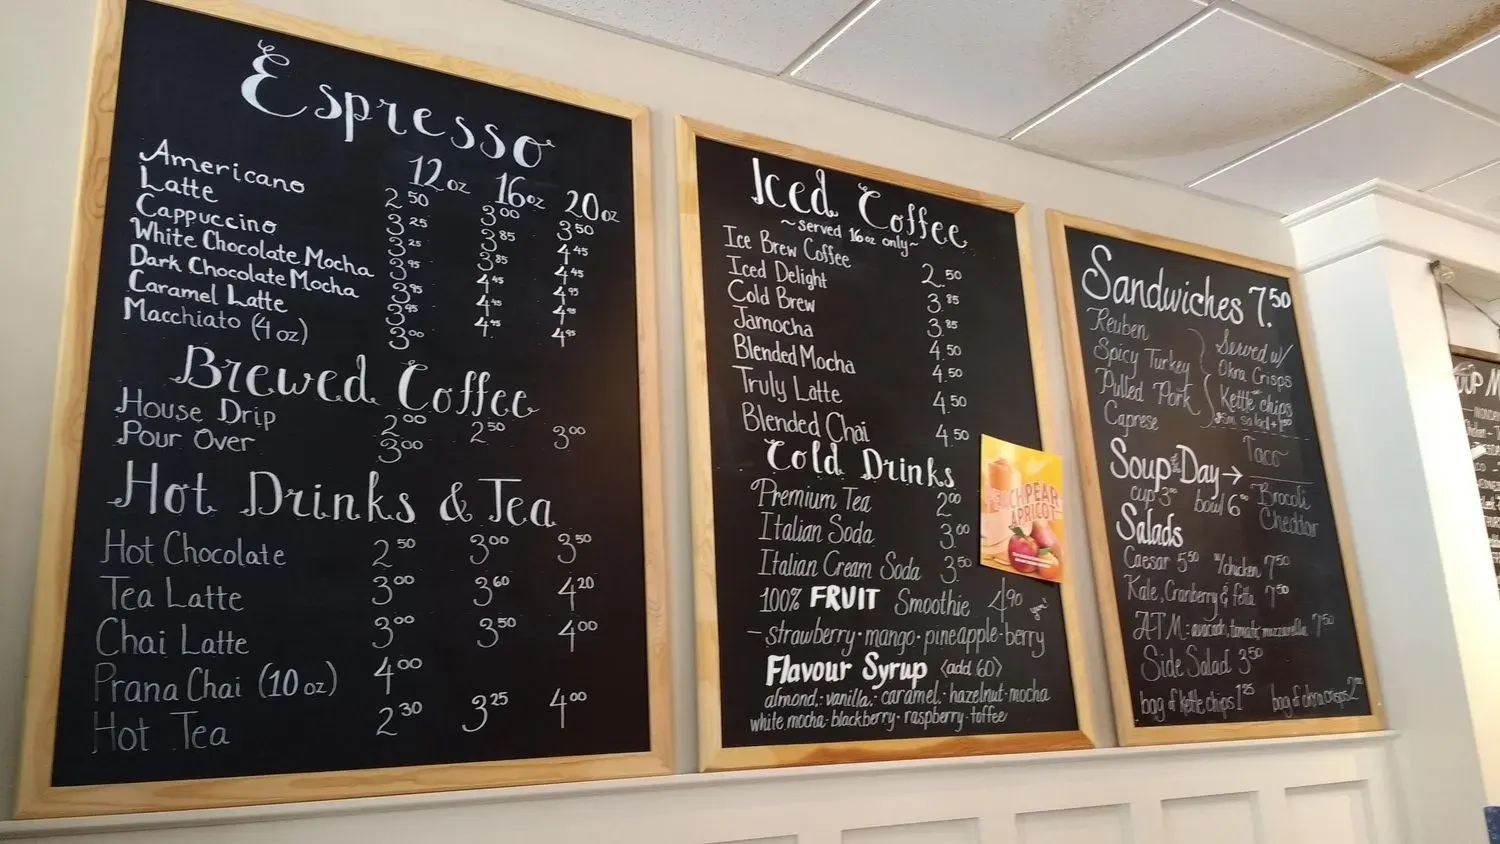 Espresso
12oz 16oz 20oz
Americano 2.50 3.00 3.50
Latte 3.25 3.85 4.45
Cappuccino 3.25 3.85 4.45
White Chocolate Mocha 3.95 4.45 4.95
Dark Chocolate Mocha 3.95 4.45 4.95
Caramel Latte 3.95 4.45 4.95
Macchiato (4 oz) 3.00
Brewed Coffee
House Drip 2.00 2.50 3.00
Pour Over 3.00
Hot Drinks & Tea
Hot Chocolate 2.50 3.00 3.50
Tea Latte 3.00 3.60 4.20
Chai Latte 3.00 3.50 4.00
Prana Chai (10 oz) 4.00
Hot Tea 2.30 3.25 4.00
Iced Coffee
~served 16oz only~
Ice Brew Coffee 2.50
Iced Delight 3.85
Cold Brew 3.85
Jamocha 4.50
Blended Mocha 4.50
Truly Latte 4.50
Blended Chai 4.50
Cold Drinks
Premium Tea 2.00
Italian Soda 3.00
Italian Cream Soda 3.50
100% FRUIT Smoothie 4.90
- strawberry · mango · pineapple · berry
Flavour Syrup (add .60)
almond · vanilla · caramel · hazelnut · mocha
white mocha · blackberry · raspberry · toffee
PEAR
APRICOT
Sandwiches 7.50
Reuben
Spicy Turkey
Pulled Pork
Caprese
Served w/
Okra Crisps
Kettle chips
Soup of the Day →
cup 3.00 bowl 6.00
Taco
Brocoli
Cheddar
Salads
Caesar 5.50 w/chicken 7.50
Kale, Cranberry & feta 7.50
A.T.M: avocado, tomato, mozzarella 7.50
Side Salad 3.50
bag of kettle chips 1.25 bag of okra crisps 2.00